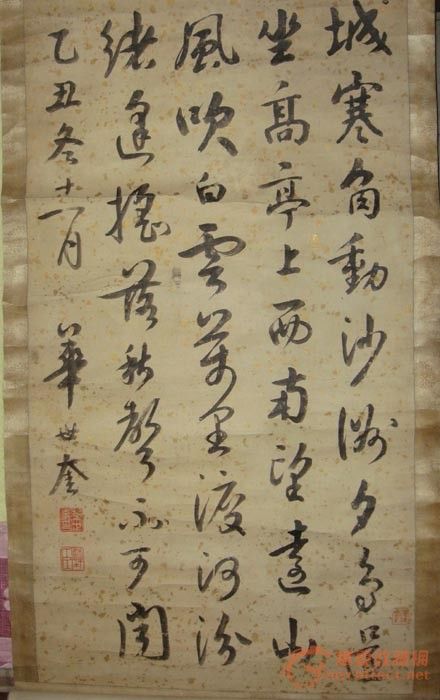 城寒角動沙洲夕鳥
坐高亭上西南望遠山
風吹白雲萬里渡河汾
緒逢搖落秋聲不可聞
乙丑冬十一月 華世奎